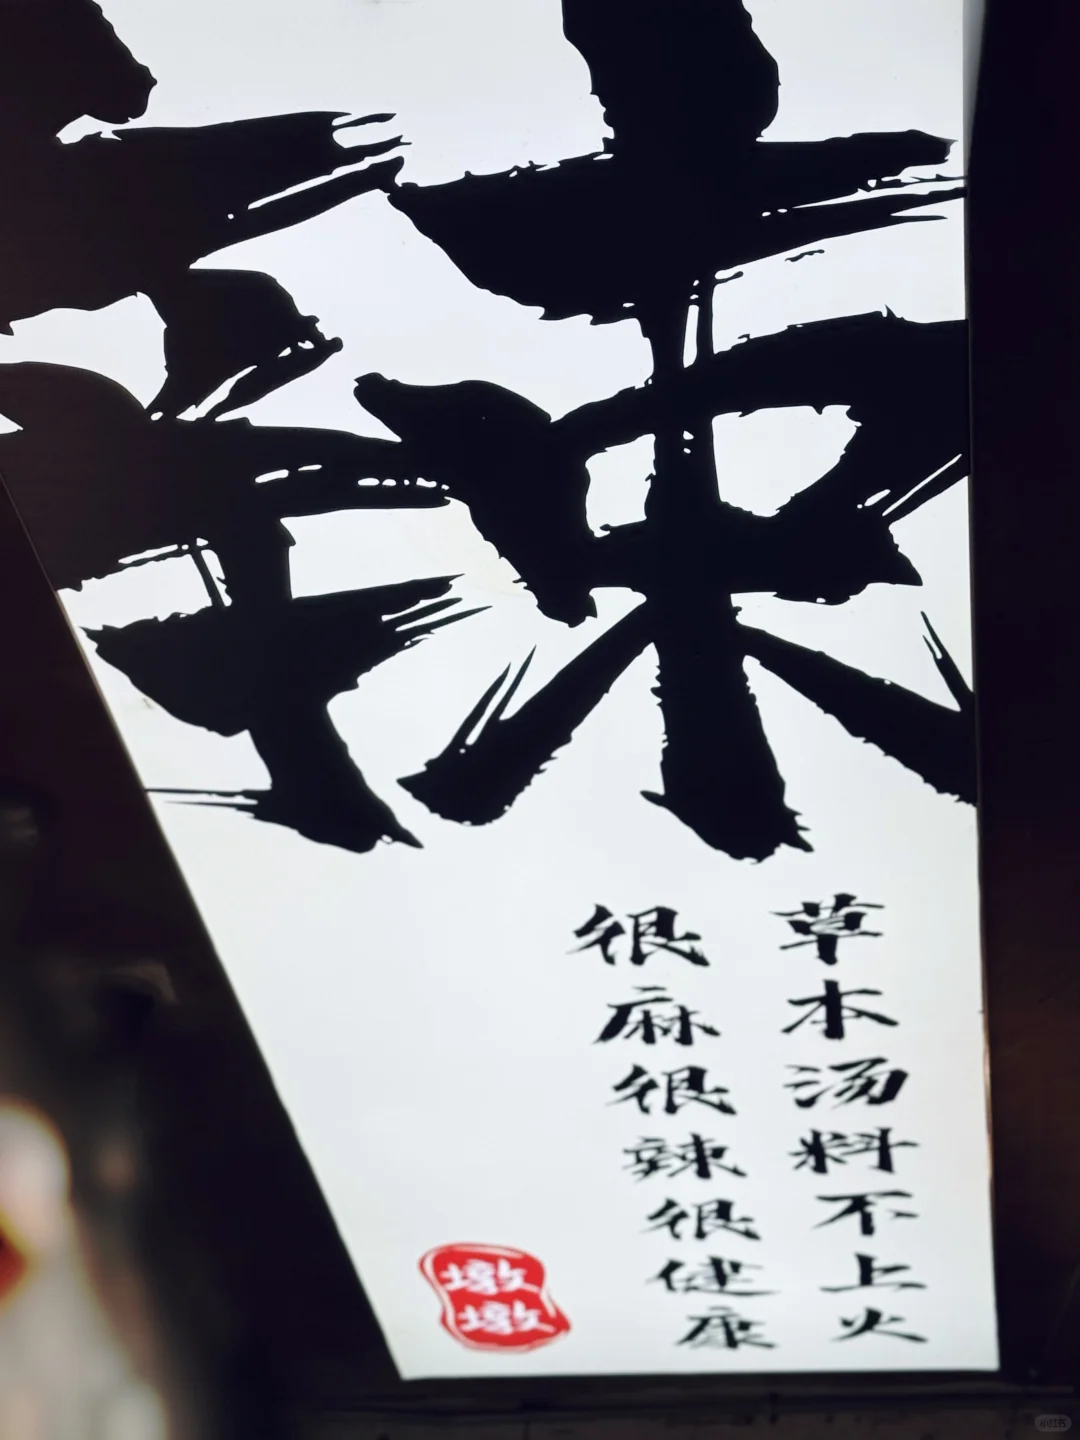 辣
草本汤料不上火
很麻很辣很健康
墩
墩
小红书